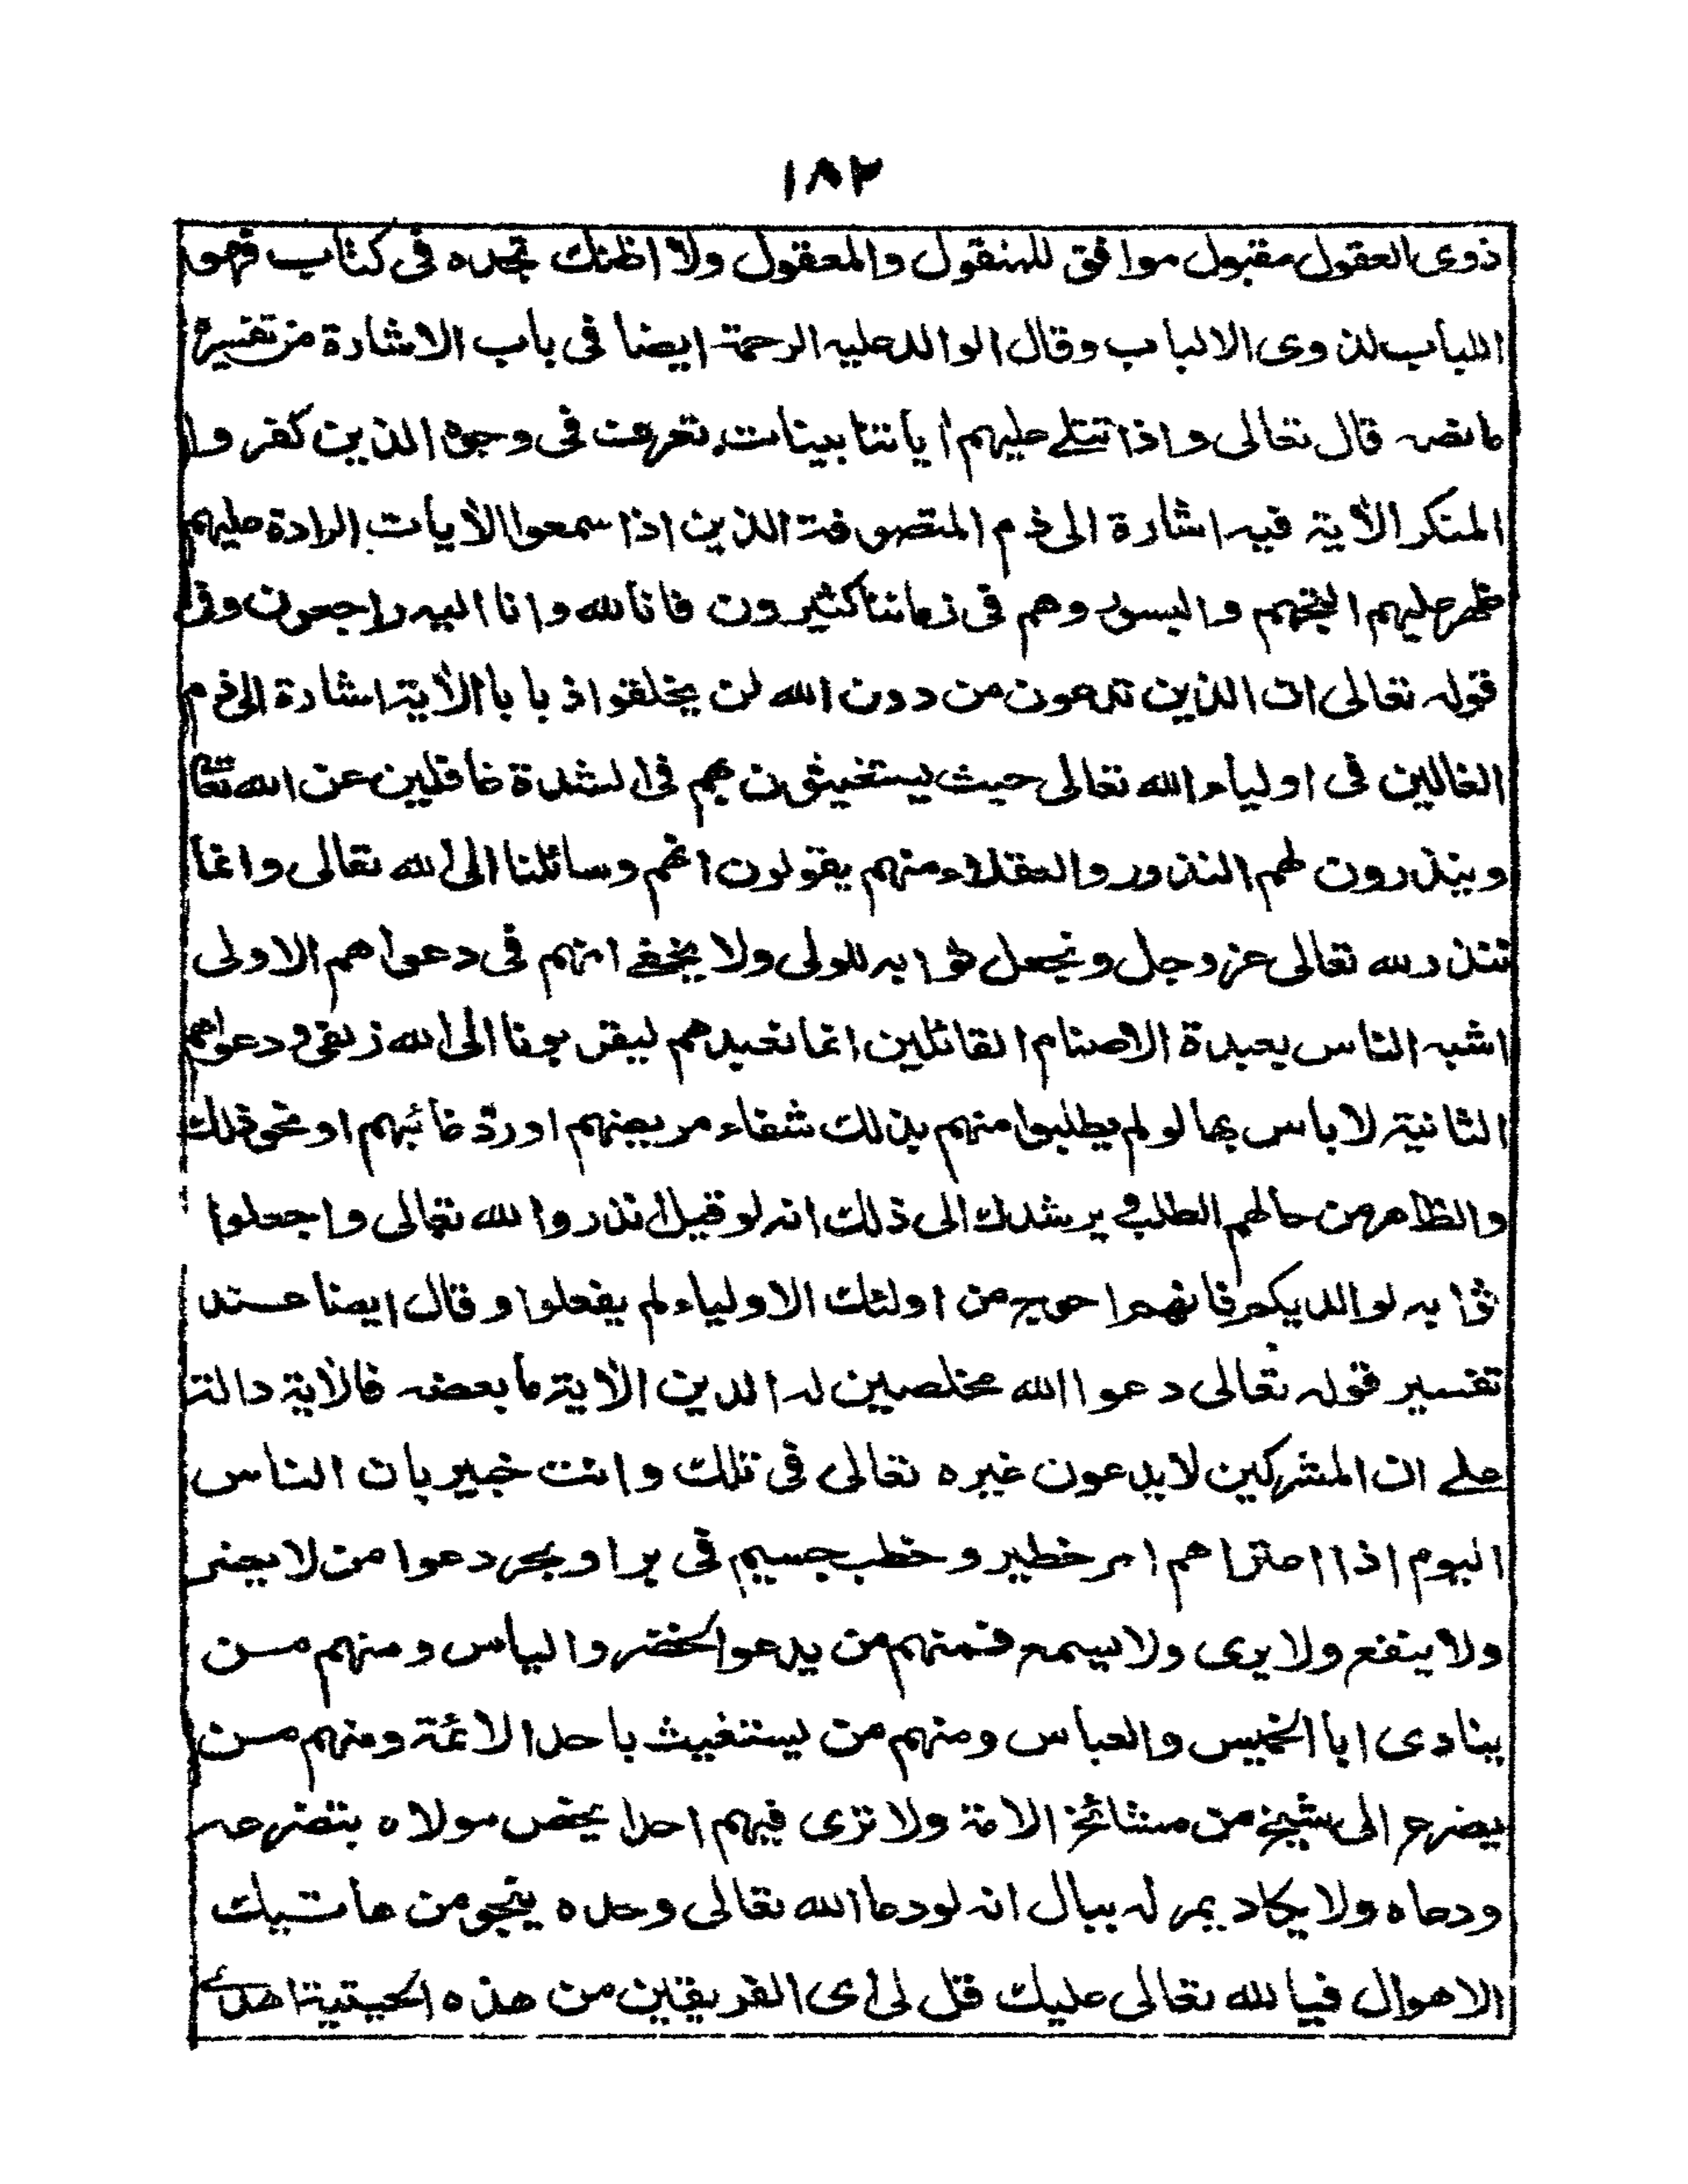 ١٨٢
ذوى العقول مقبول موافق للمنقول والمعقول ولا اظنك تجده فى كتاب فهو
اللباب لذوى الالباب وقال الوالد عليه الرحمة ايضا فى باب الاشارة من تفسيره
ما نصه قال تعالى واذا تتلے عليهم اياتنا بينات تعرف فى وجوه الذين كفروا
المنكر الأية فيه اشارة الى ذم المتصوفة الذين اذا سمعوا الأيات الرادة عليهم
ظهر عليهم التجهم والبسور وهم فى زماننا كثيرون فانا لله وانا اليه راجعون وفى
قوله تعالى ان الذين تدعون من دون الله لن يخلقوا ذبابا الأية اشارة الى ذم
الغالين فى اولياء الله تعالى حيث يستغيثون بهم فى الشدة غافلين عن الله تعا
وينذرون لهم النذور والعقلاء منهم يقولون انهم وسائلنا الى الله تعالى وانما
ننذر لله تعالى عز وجل ونجعل ثوابه للولى ولا يخفے انهم فى دعواهم الاولى
اشبه الناس بعبدة الاصنام القائلين انما نعبدهم ليقربونا الى الله زلفى ودعواهم
الثانية لا باس بها لو لم يطلبوا منهم بذلك شفاء مريضهم او ردّ غائبهم او نحو ذلك
والظاهر من حالهم الطلب و يرشدك الى ذلك انه لو قيل انذروا لله تعالى واجعلوا
ثوابه لوالديكم فانهم احوج من اولئك الاولياء لم يفعلوا وقال ايضا عند
تفسير قوله تعالى دعوا الله مخلصين له الدين الأية ما بعضه فالأية دالة
علے ان المشركين لا يدعون غيره تعالى فى تلك وانت خبير بان الناس
اليوم اذا اعتراهم امر خطير وخطب جسيم فى بر او بحر دعوا من لا يضر
ولا ينفع ولا يرى ولا يسمع فمنهم من يدعو الخضر والياس ومنهم من
ينادى ابا الخميس والعباس ومنهم من يستغيث باحد الائمة ومنهم من
يضرع الى شيخ من مشائخ الامة ولا ترى فيهم احدا يخص مولاه بتضرعه
ودعاه ولا يكاد يمر له ببال انه لو دعا الله تعالى وحده ينجو من هاتيك
الاهوال فبالله تعالى عليك قل لى أى الفريقين من هذه الحيثية اهدى